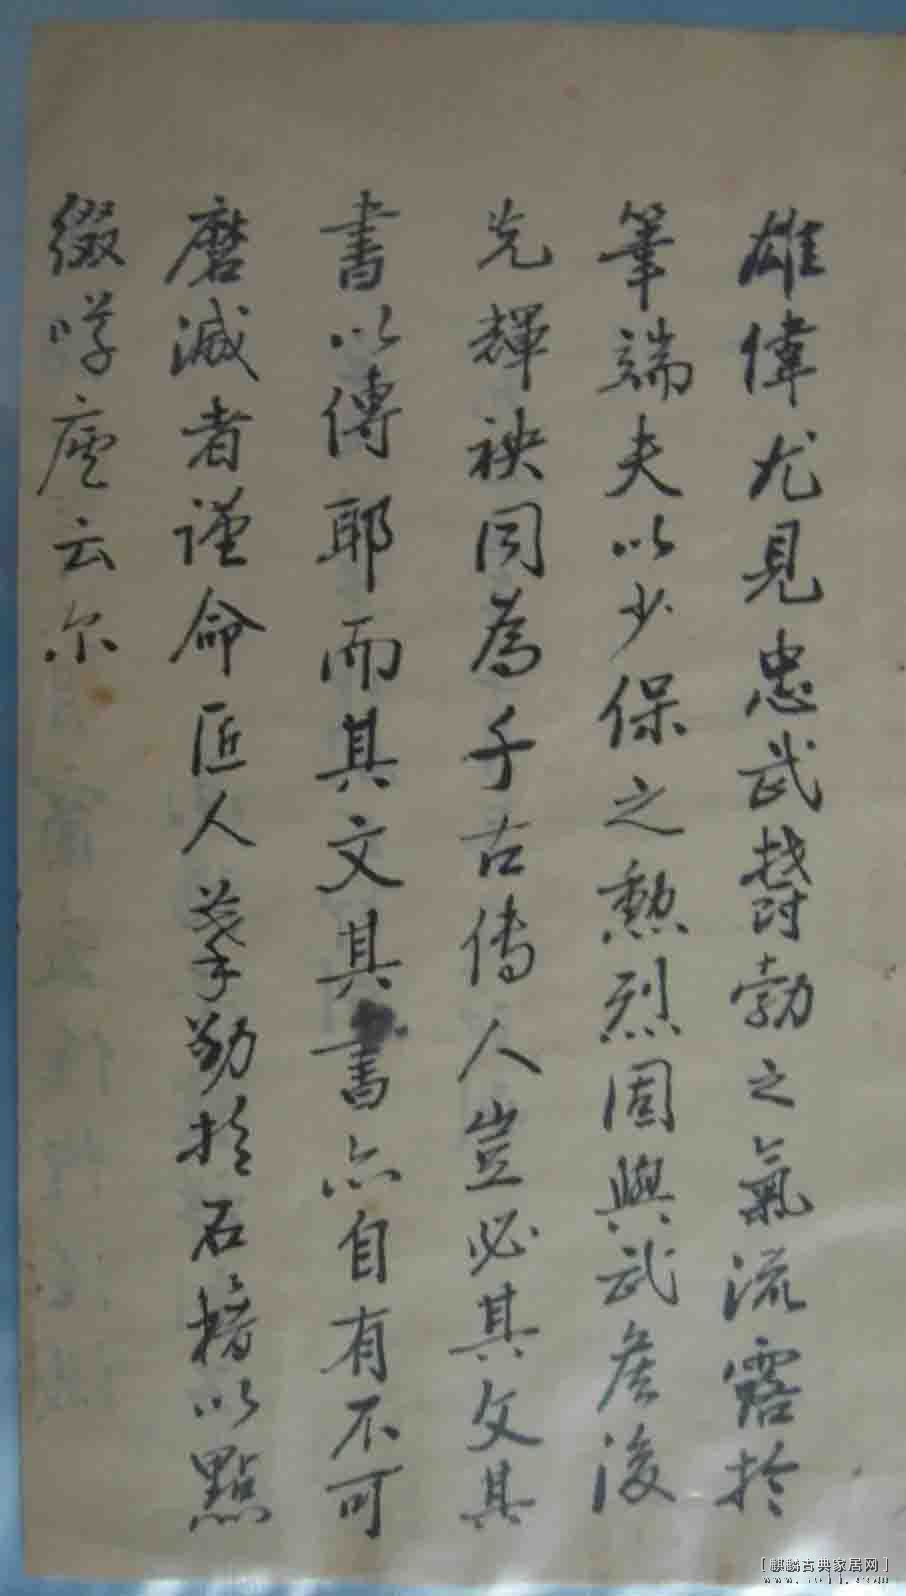 雄偉尤見忠武欝勃之氣流露於
筆端夫以少保之勲烈固與武矦後
先輝映同為千古传人豈必其文其
書以傳耶而其文其書亦自有不可
磨滅者謹命匠人摹勒於石藉以點
綴草廬云尔
[麒麟古典家居网]